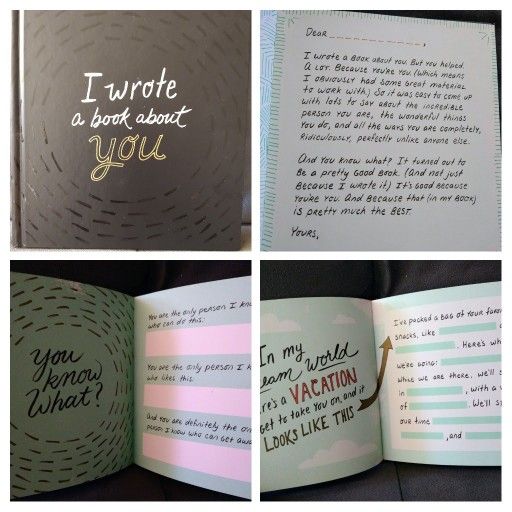 I wrote
a book about
you
Dear
I wrote a book about you. But you helped.
A lot. Because you're you. (Which means
I obviously had some great material
to work with.) So it was easy to come up
with lots to say about the incredible
person you are, the wonderful things
you do, and all the ways you are completely,
ridiculously, perfectly unlike anyone else.
And you know what? It turned out to
be a pretty good book. (And not just
because I wrote it.) It's good because
you're you. And because that (in my book)
is pretty much the best.
Yours,
You
know
What?
You are the only person I
who can do this:
You are the only person I
who likes this:
And you are definitely the
person I know who can get
In my
World
a VACATION
get to take you on, and it
LOOKS LIKE THIS
I've packed a bag of your
snacks, like
. Here's
we're going:
While we are there, we'll
in , with a
of . We'll
our time
, and